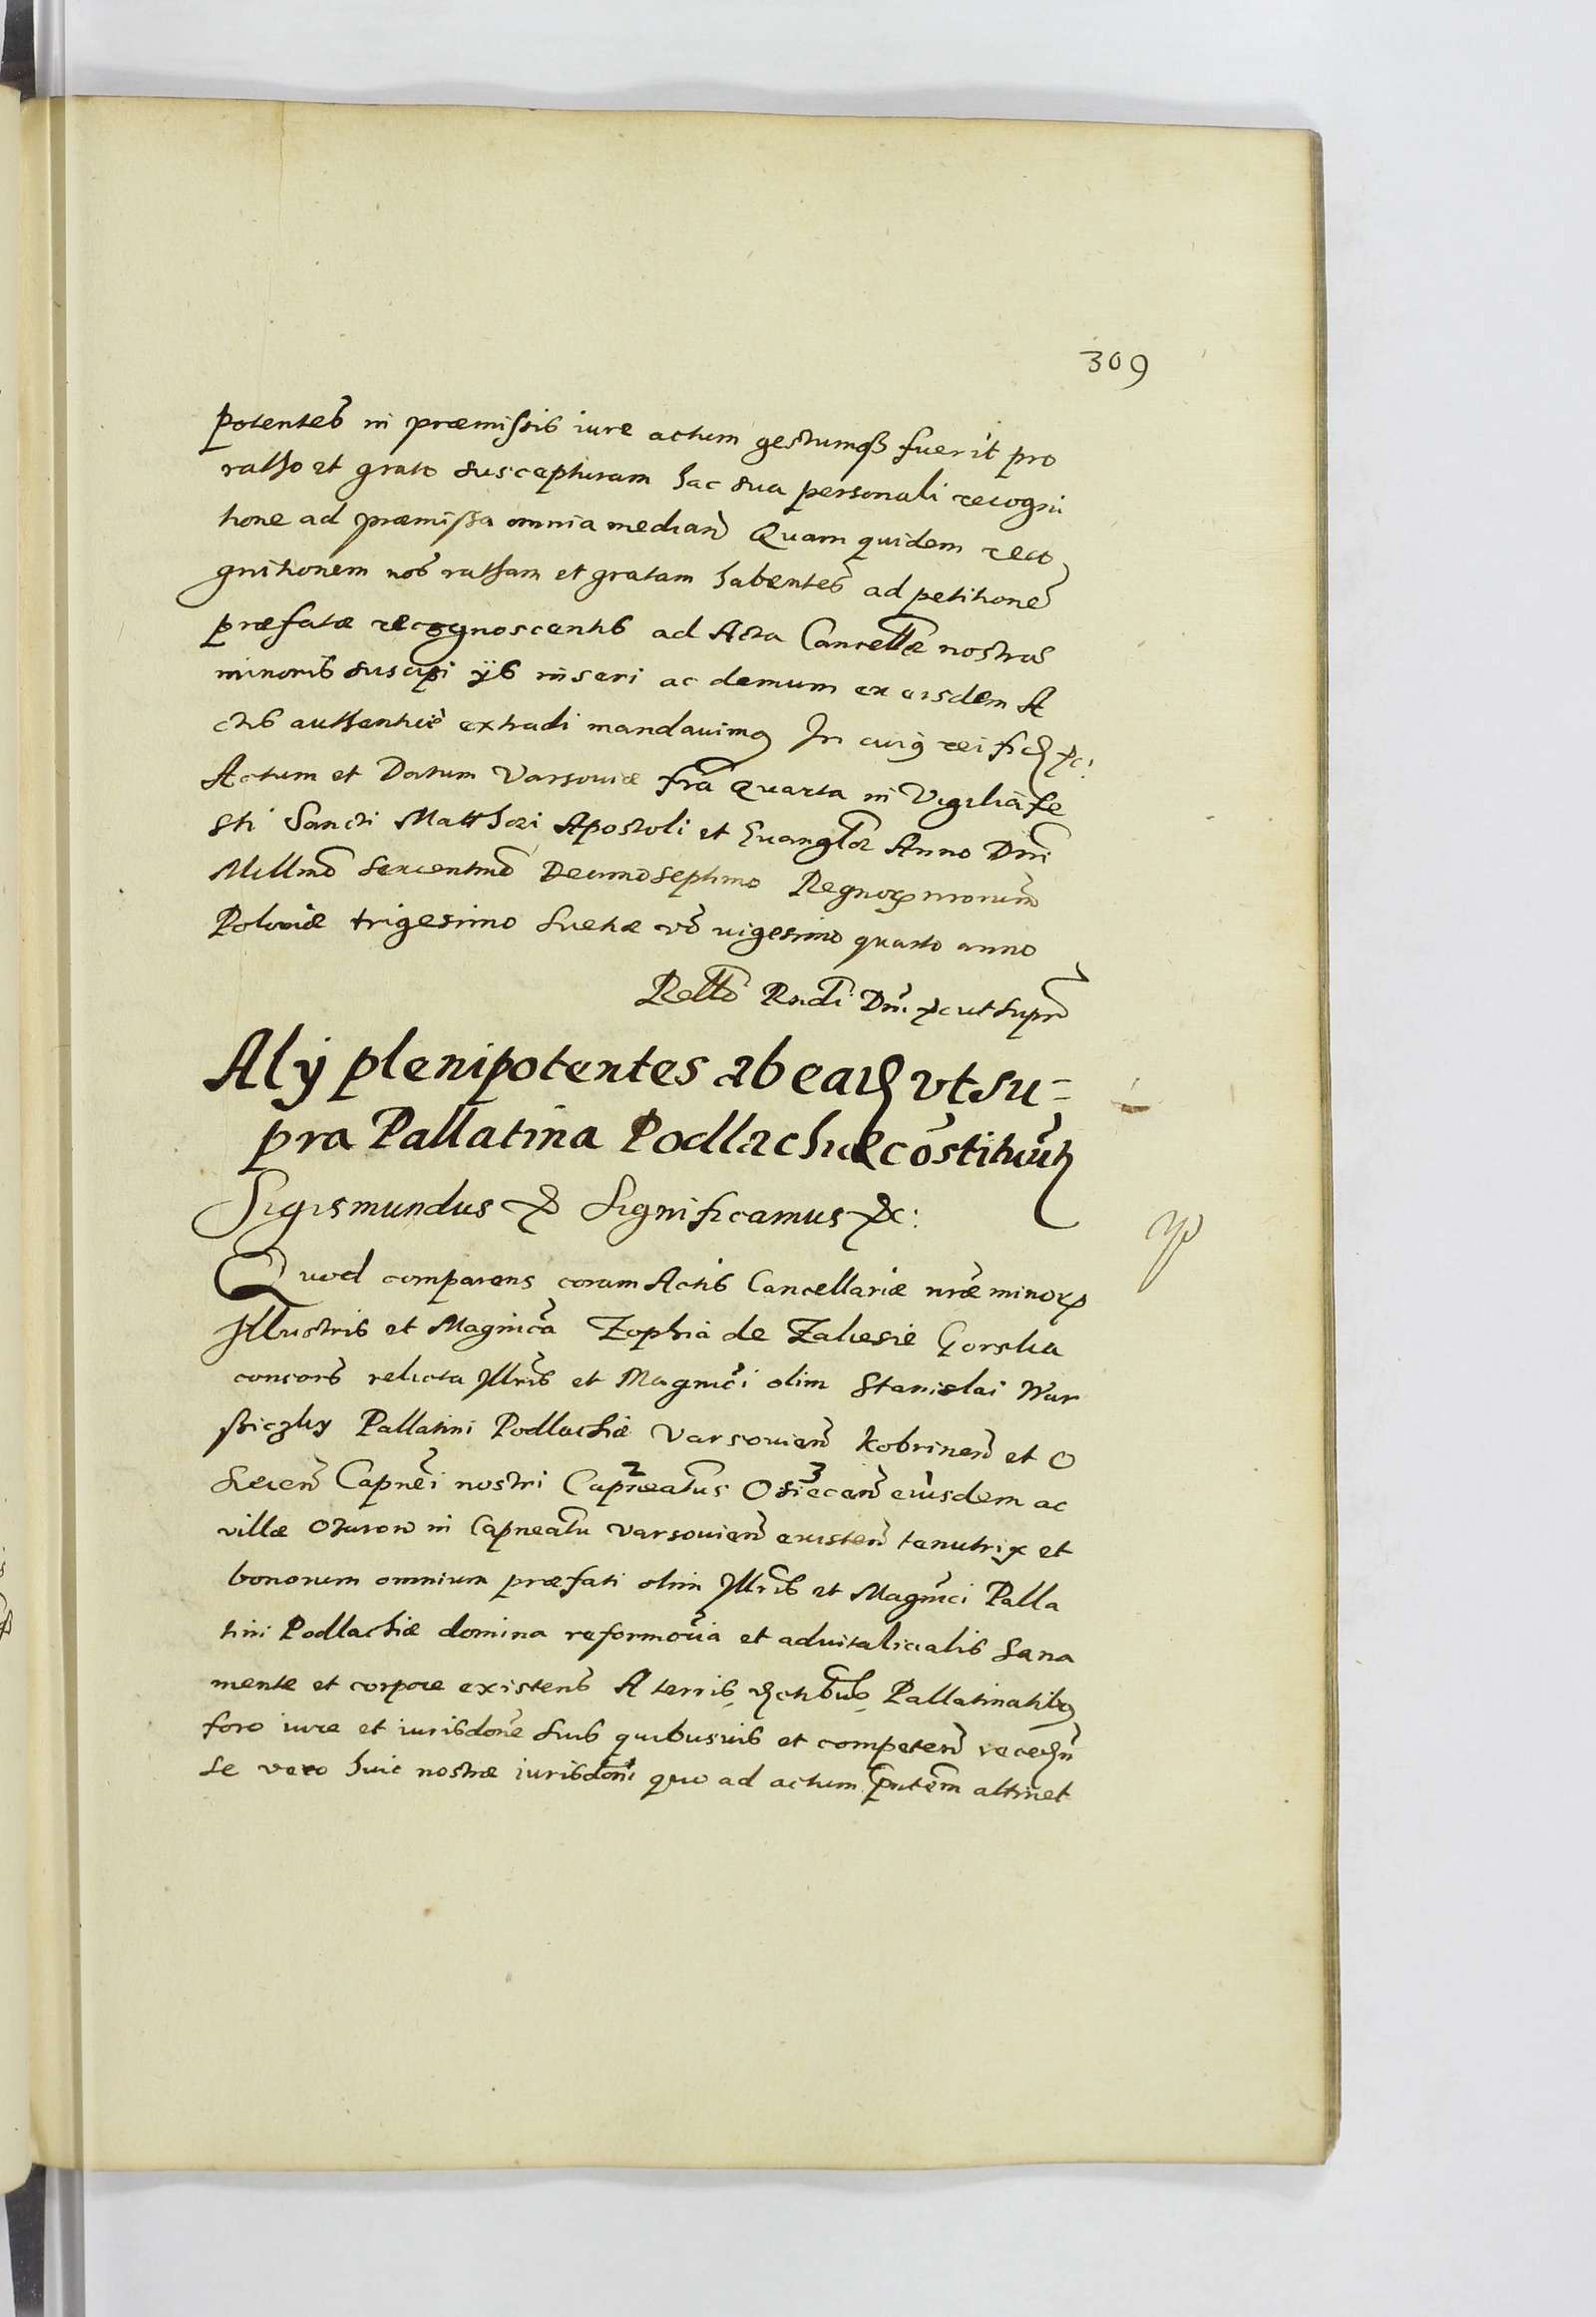 309
potentes in præmissis iure actum gestumq₃ fuerit pro
ratho et grato suscepturam hac sua personali recogni
tione ad præmissa omnia median̄ Quam quidem reco
gnitionem nos ratham et gratam habentes ad petitionē
præfatæ recognoscentis ad Acta Cancellæ nostras
minoris suscipi ijs inseri ac demum ex eisdem A
ctis authenticè extradi mandauimꝰ In cuiꝰ rei fid &c:
Actum et Datum Varsouiæ fr̄a Quarta in Vigilia fe
sti Sancti Matthæi Apostoli et Euang̃læ Anno Dn̄i
Millmo sexcentmo Decimo septimo Regnoꝝ nrorum
Poloniæ trigesimo Suetiæ vo vigesimo quarto anno
Relt̄o Rndi Dn̄i &c ut supra
Alÿ plenipotentes ab ead vt su=
pra Pallatina Podlachiæ cōstituūt
Sigismundus & Significamus &c:
Quod comparens coram Actis Cancellariæ nr̄æ minorꝭ
Illustris et Magnica Zophia de Zalesie Gorska
consors relicta Illris et Magnici olim Stanislai War
szickÿ Pallatini Podlachiæ Varsouien̄ Kobrinen̄ et O
secien̄ Capnei nostri Capneatus 2 Osiecen̄ 3 eiusdem ac
villæ Ożarow in Capneatu Varsouien̄ existen̄ tenutrix et
bonorum omnium præfati olim Illris et Magnici Palla
tini Podlachiæ domina reformoria et aduitalicialis sana
mente et corpore existens A terris Pallatinatibꝰ
foro iure et iurisdone suis quibusuis et competen̄ recedn̄
se vero huic nostræ iurisdoni quo ad actum pn̄tem attinet